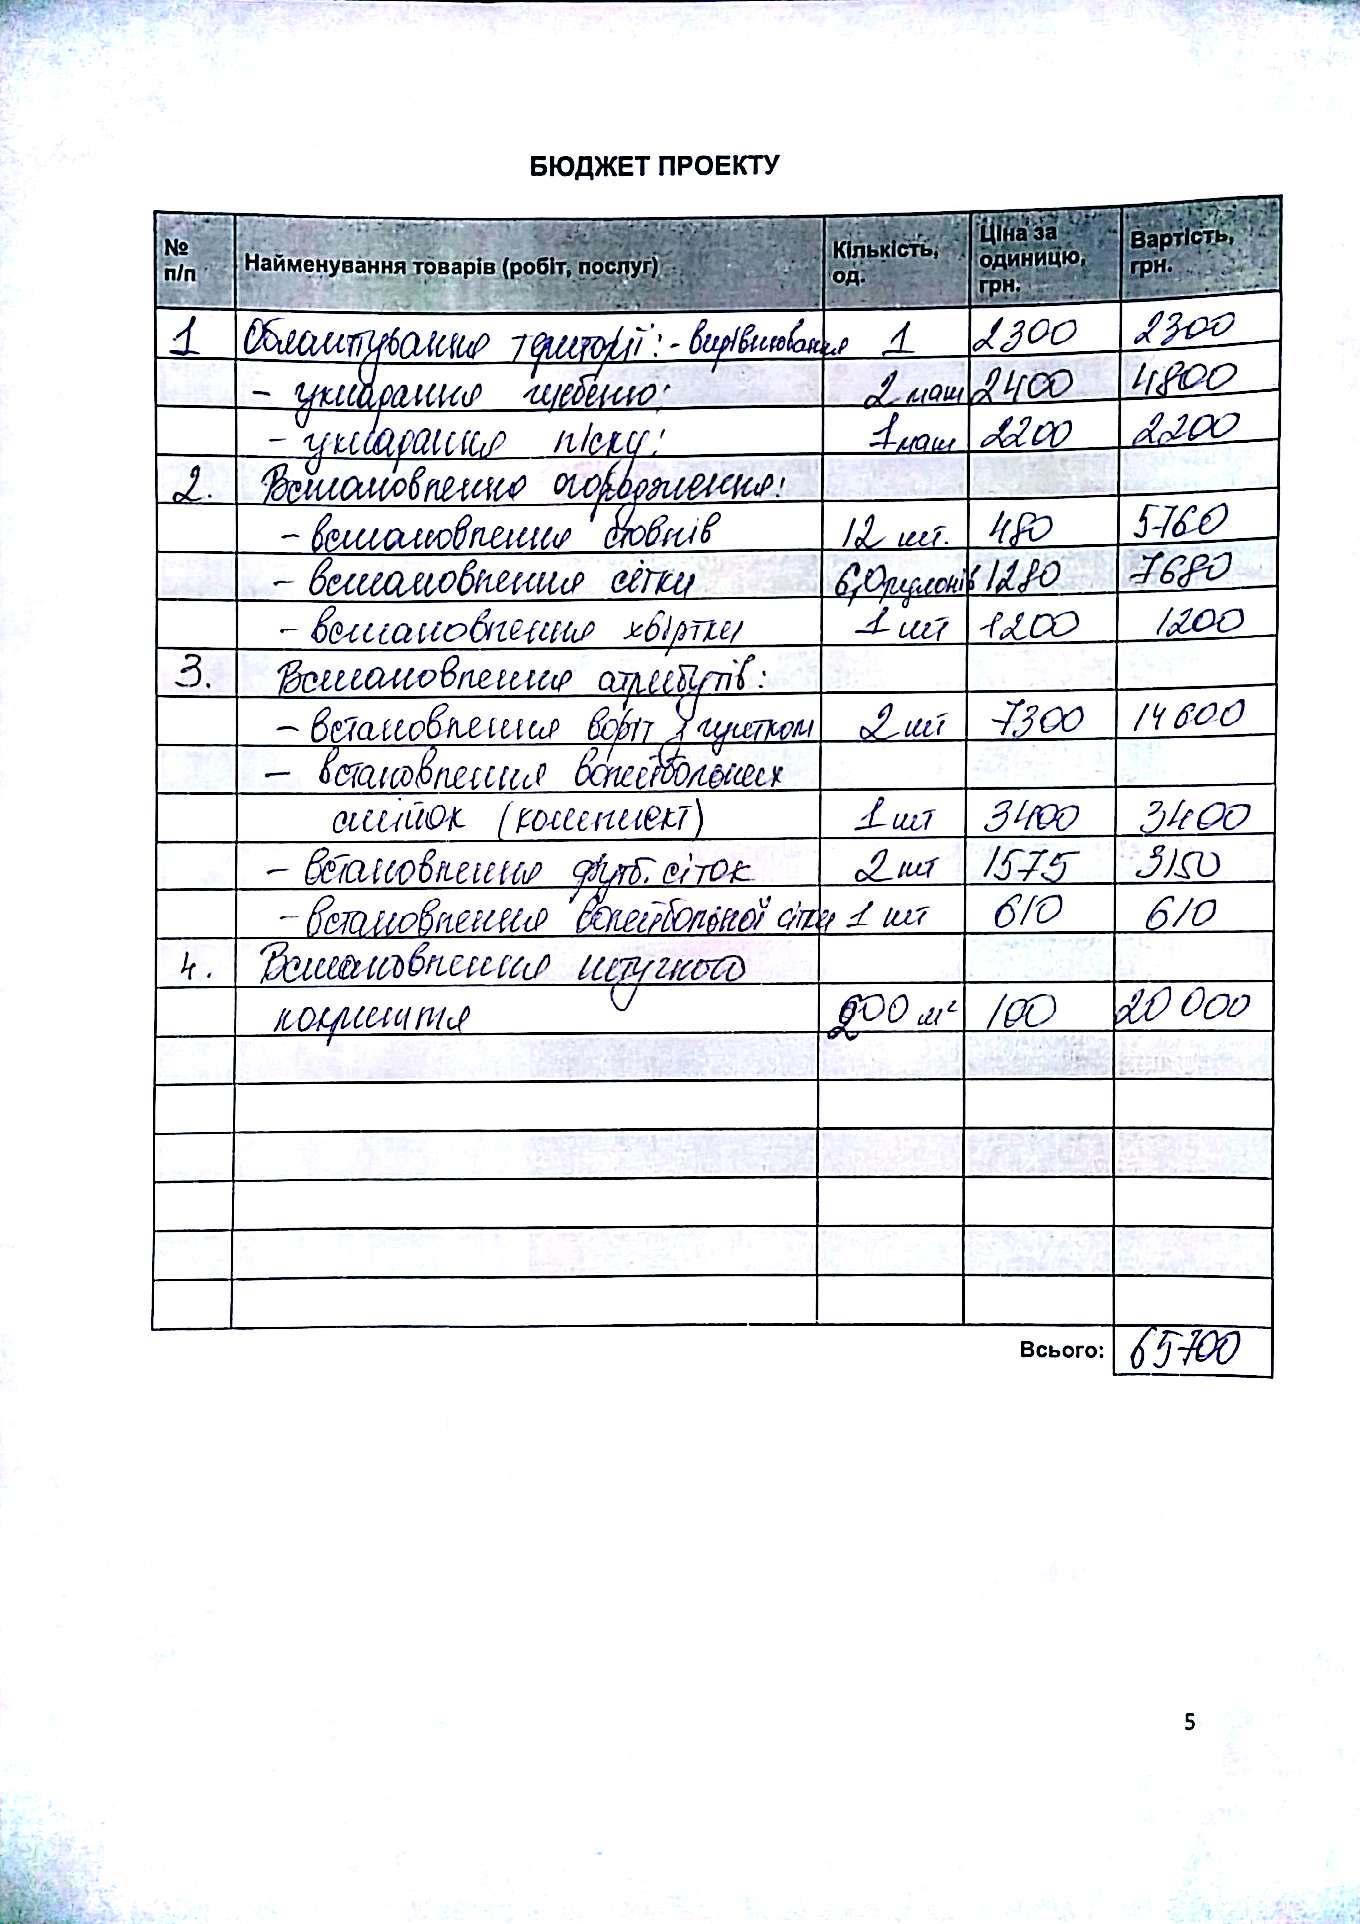 БЮДЖЕТ ПРОЕКТУ
№ п/п Найменування товарів (робіт, послуг) Кількість, од. Ціна за одиницю, грн. Вартість, грн.
1 Облаштування території: - вирівнювання 1 2300 2300
- укладання щебеню; 2 маш 2400 4800
- укладання піску; 1 маш 2200 2200
2. Встановлення огородження:
- встановлення стовпів 12 шт. 480 5760
- встановлення сітки 6,0 рулонів 1280 7680
- встановлення хвіртки 1 шт 1200 1200
3. Встановлення атрибутів:
- встановлення воріт з щитком 2 шт 7300 14600
- встановлення волейбольних
стійок (комплект) 1 шт 3400 3400
- встановлення футб. сіток 2 шт 1575 3150
- встановлення волейбольної сітки 1 шт 610 610
4. Встановлення штучного
покриття 200 м² 100 20 000
Всього: 65700
5